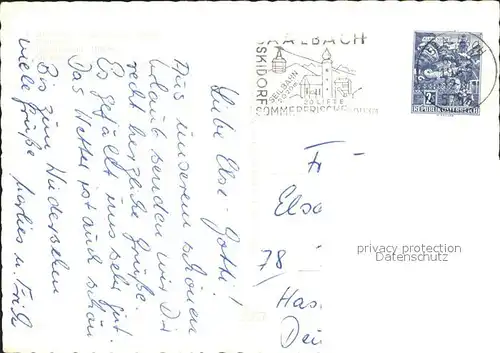 Liebe Else-Gotti!
Aus unserem schönen
Urlaub senden wir Dir
recht herzliche Grüße.
Es gefällt uns sehr gut.
Das Wetter ist auch schön
Bis zum Wiedersehn
viele Grüße
SAALBACH
SKIDORF
SEILBAHN
20 LIFTE
SOMMERFRISCHE
REPUBLIK ÖSTERREICH
Fr
Elsa
78
Has
Deu
privacy protection
Datenschutz